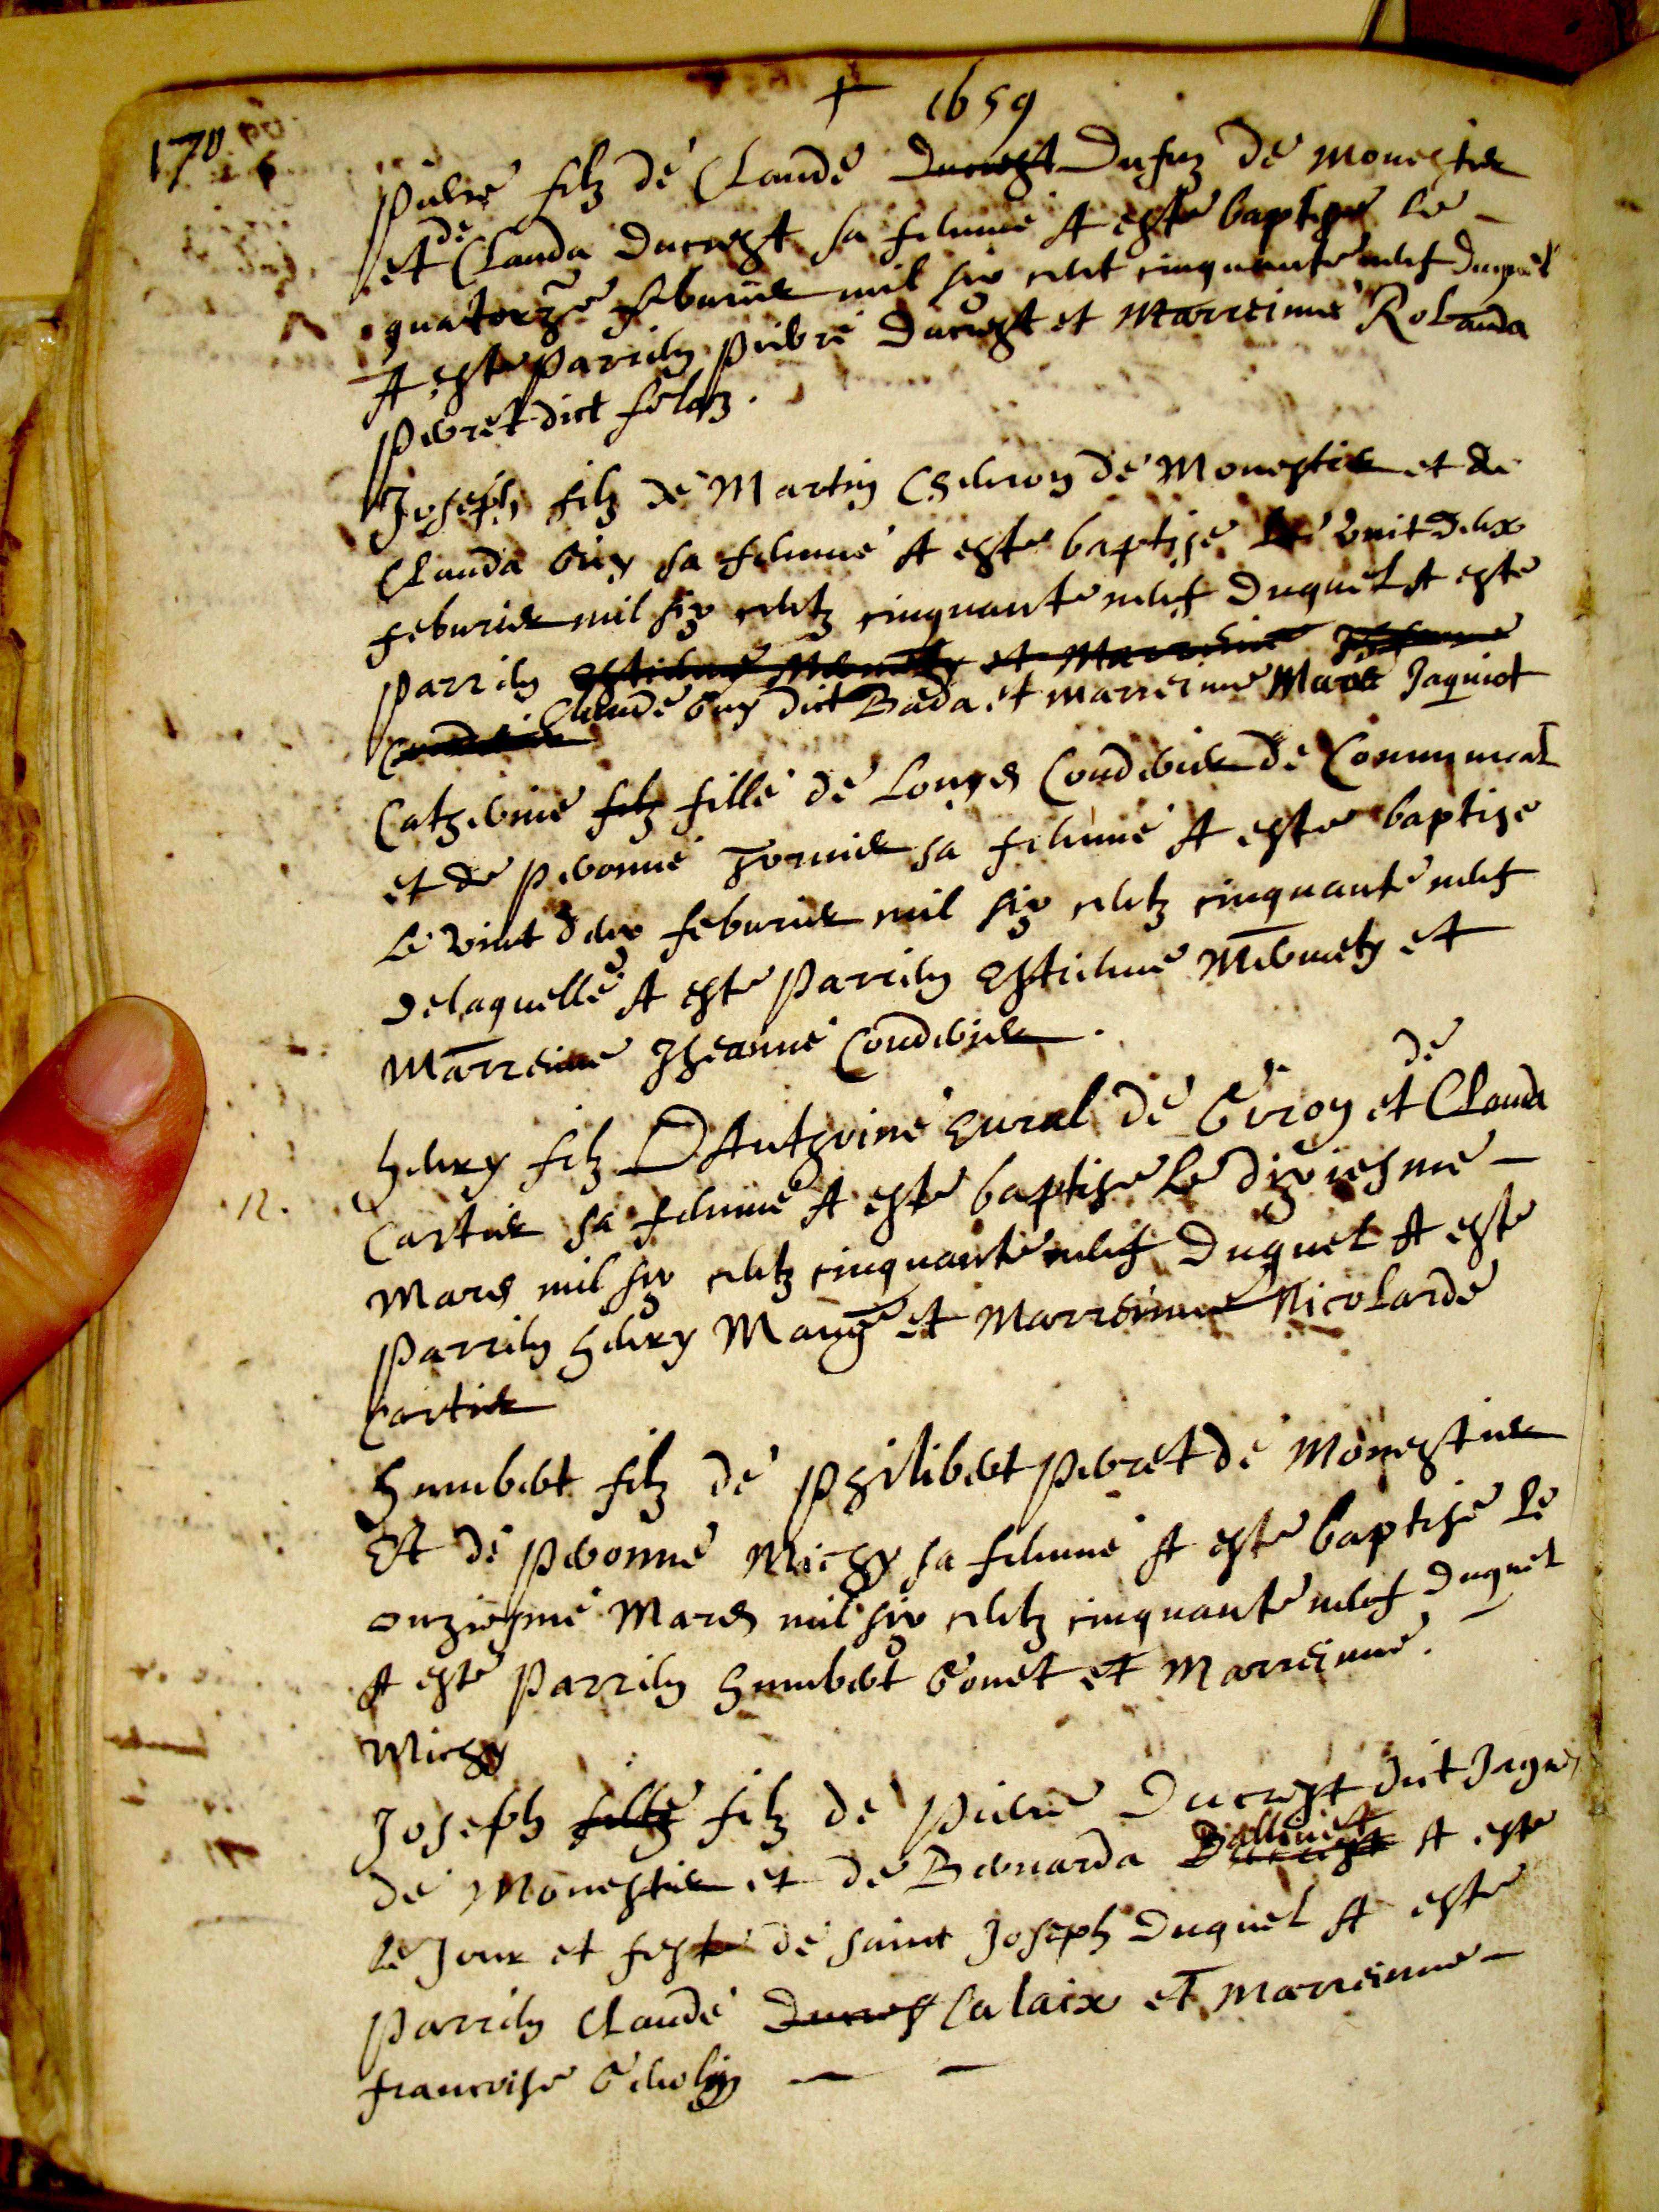 + 1659
170
Pierre filz de Claude Ducrest Dufuz de Monestier
et de Clauda Ducrest sa femme A este baptise le
quatorze feburier mil six cent cinquante neuf duquel
A este Parrein Pierre Ducrest et Marreinne Rolanda
Perret dict
Joseph filz de Martin de Monestier et de
Clauda Guy sa femme A este baptise le vint deux
feburier mil six centz cinquante neuf Duquel A este
parrein Estienne et Marreine Jheanne
Claude Guy dict Bada et marreinne Marie Jaquiot
Catherine filz fille de Louys Condevier de
et de Peronne sa femme A este baptise
le vint deux feburier mil six centz cinquante neuf
Delaquelle A este Parrein Estienne et
Marreine Jheanne Condevier
Henry filz D Anthoine de et de Clauda
12.
Cartier sa femme A este baptise le dixiesme
Mars mil six centz cinquante neuf Duquel A este
Parrein Henry et Marreinne Nicolarde
Cartier
Humbert filz de Philibert Perret de Monestier
Et de Peronne Michy sa femme A este baptise le
onziesme Mars mil six centz cinquante neuf duquel
A este Parrein Humbert Gonet et Marreinne
Michy
Joseph fille filz de Pierre Ducrest dict
de Monestier et de Bernarda Ducrest A este
le Jour et feste de saint Joseph Duquel A este
Parrein Claude Ducres Calaix et Marreinne
francoise